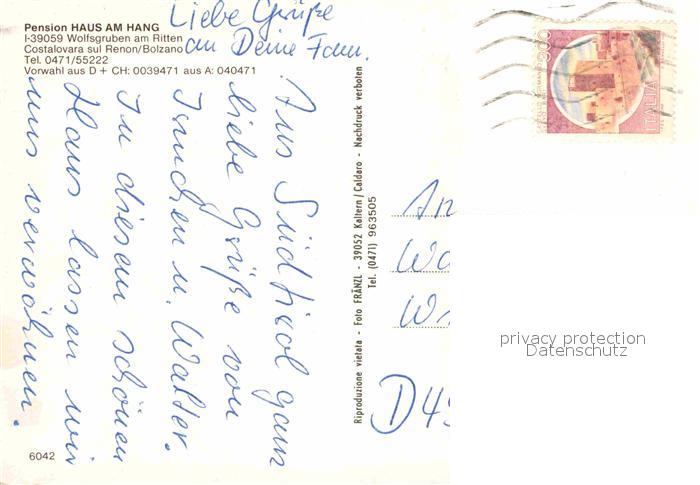 Pension HAUS AM HANG
I-39059 Wolfsgruben am Ritten
Costalovara sul Renon/Bolzano
Tel. 0471/55222
Vorwahl aus D + CH: 0039471 aus A: 040471
Liebe Grüße
an Deine Fam.
Aus Südtirol ganz
liebe Grüße von
u. Walter.
In diesem schönen
Haus lassen wir
uns verwöhnen.
6042
Riproduzione vietata - Foto FRÄNZL - 39052 Kaltern/Caldaro - Nachdruck verboten
Tel. (0471) 963505
D 49
ITALIA
privacy protection
Datenschutz